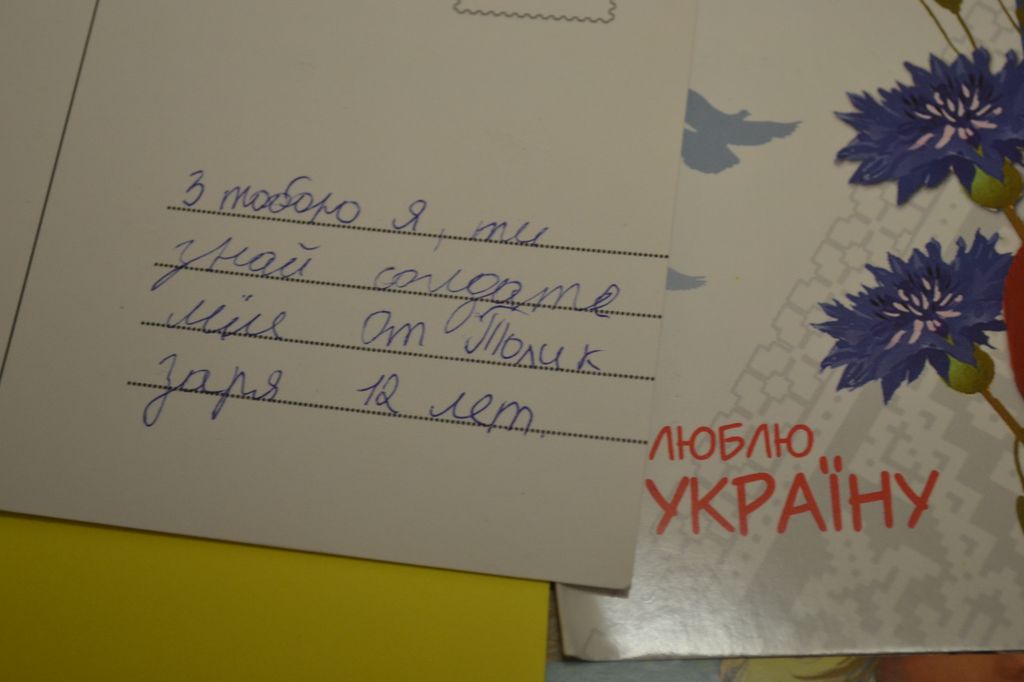 З тобою я, ти
знай солдате
мія От Толик
заря 12 лет.
ЛЮБЛЮ
УКРАЇНУ